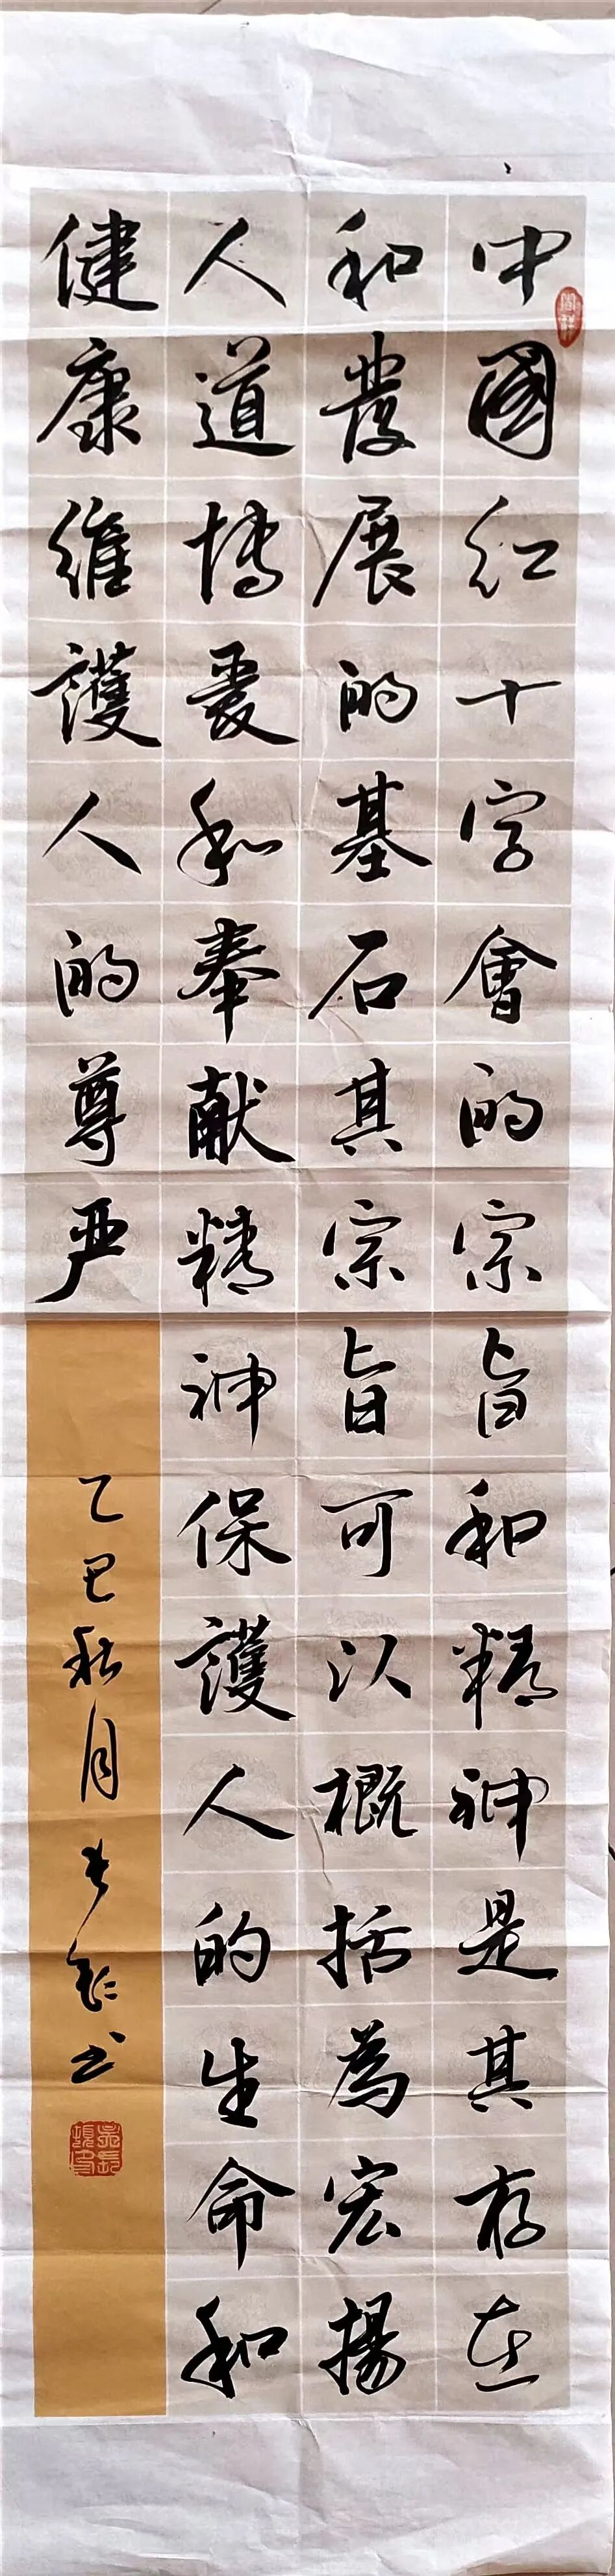 中國紅十字會的宗旨和精神是其存在
和發展的基石其宗旨可以概括為宏揚
人道博愛和奉献精神保護人的生命和
健康維護人的尊严
乙巳秋月
书